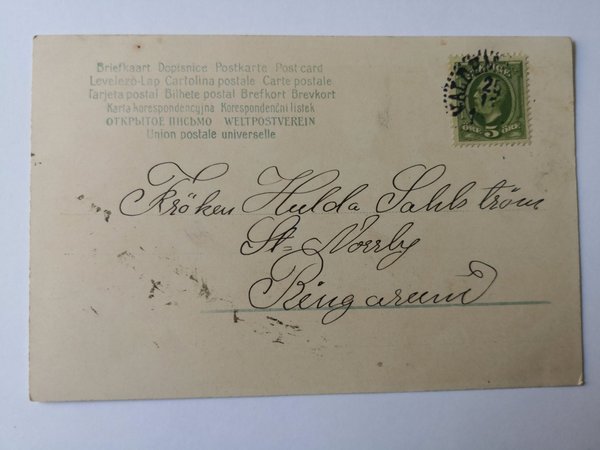 Briefkaart Dopisnice Postkarte Post card
Levelező-Lap Cartolina postale Carte postale
Tarjeta postal Bilhete postal Brefkort Brevkort
Karta korespondencyjna Korespondenčai listek
ОТКРЫТОЕ ПИСЬМО WELTPOSTVEREIN
Union postale universelle
5 ÖRE
Fröken Hulda Sahlström
St=Norrby
Ringarum